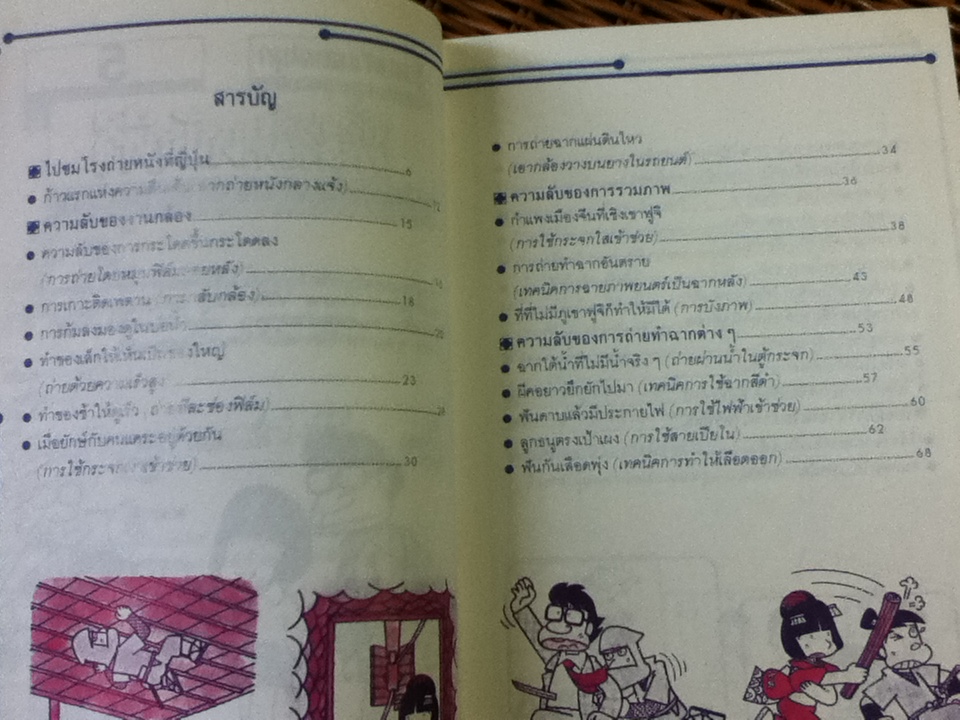 สารบัญ
ไปชมโรงถ่ายหนังที่ญี่ปุ่น 6
ก้าวแรกแห่งความ ถ่ายหนังกลางแจ้ง)
ความลับของงานกล้อง 15
ความลับของการกระโดดขึ้นกระโดดลง
(การถ่ายโดยหมุนฟิล์ม หลัง)
การเกาะติดเพดาน กลับกล้อง) 18
การก้มลงมองดูในบ่อน้ำ 20
ทำของเล็กให้เห็นเป็นของใหญ่
(ถ่ายด้วยความเร็วสูง 23
ทำของช้าให้ดูเร็ว ทีละช่องฟิล์ม)
เมื่อยักษ์กับคนแคระอยู่ด้วยกัน
(การใช้กระจกเงาเข้าช่วย) 30
การถ่ายฉากแผ่นดินไหว
(เอากล้องวางบนยางในรถยนต์) 34
ความลับของการรวมภาพ 36
กำแพงเมืองจีนที่เชิงเขาฟูจิ
(การใช้กระจกใสเข้าช่วย) 38
การถ่ายทำฉากอันตราย
(เทคนิคการฉายภาพยนตร์เป็นฉากหลัง) 43
ที่ที่ไม่มีภูเขาฟูจิก็ทำให้มีได้ (การบังภาพ) 48
ความลับของการถ่ายทำฉากต่าง ๆ 53
ฉากใต้น้ำที่ไม่มีน้ำจริง ๆ (ถ่ายผ่านน้ำในตู้กระจก) 55
ผีคอยาวยึกยักไปมา (เทคนิคการใช้ฉากสีดำ) 57
ฟันดาบแล้วมีประกายไฟ (การใช้ไฟฟ้าเข้าช่วย) 60
ลูกธนูตรงเป้าเผง (การใช้สายเปียโน) 62
ฟันกันเลือดพุ่ง (เทคนิคการทำให้เลือดออก) 68